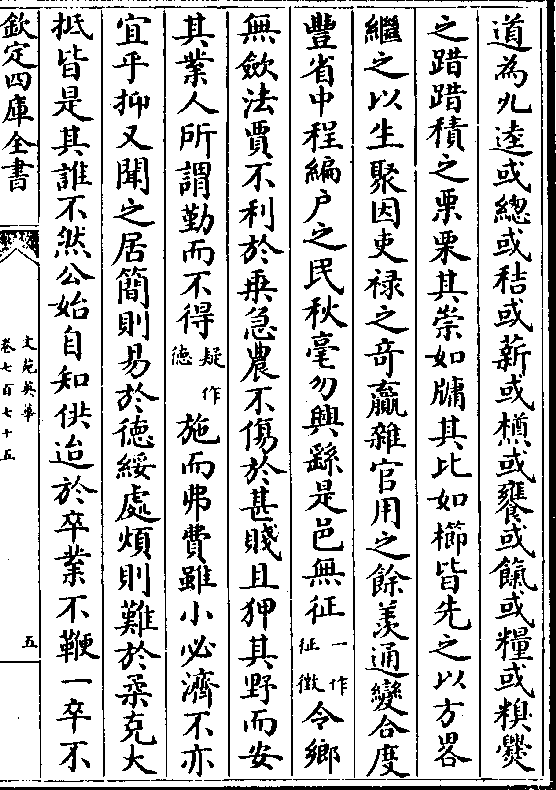 道為九逵或總或秸或薪或槱或饔或餼或糧或糗爨
之踖踖積之栗栗其崇如墉其比如櫛皆先之以方畧
繼之以生聚因吏禄之竒贏雜官用之餘羡通變合度
豐省中程編戶之民秋毫勿興繇是邑無征一作征徴令鄉
無斂法賈不利於乗急農不傷於甚賤且狎其野而安
其業人所謂勤而不得疑作德施而弗費雖小必濟不亦
宜乎抑又聞之居簡則易於徳綏處煩則難於柔克大
抵皆是其誰不然公始自知供迨於卒業不鞭一卒不
欽定四庫全書
文苑英華
卷七百七十五
五